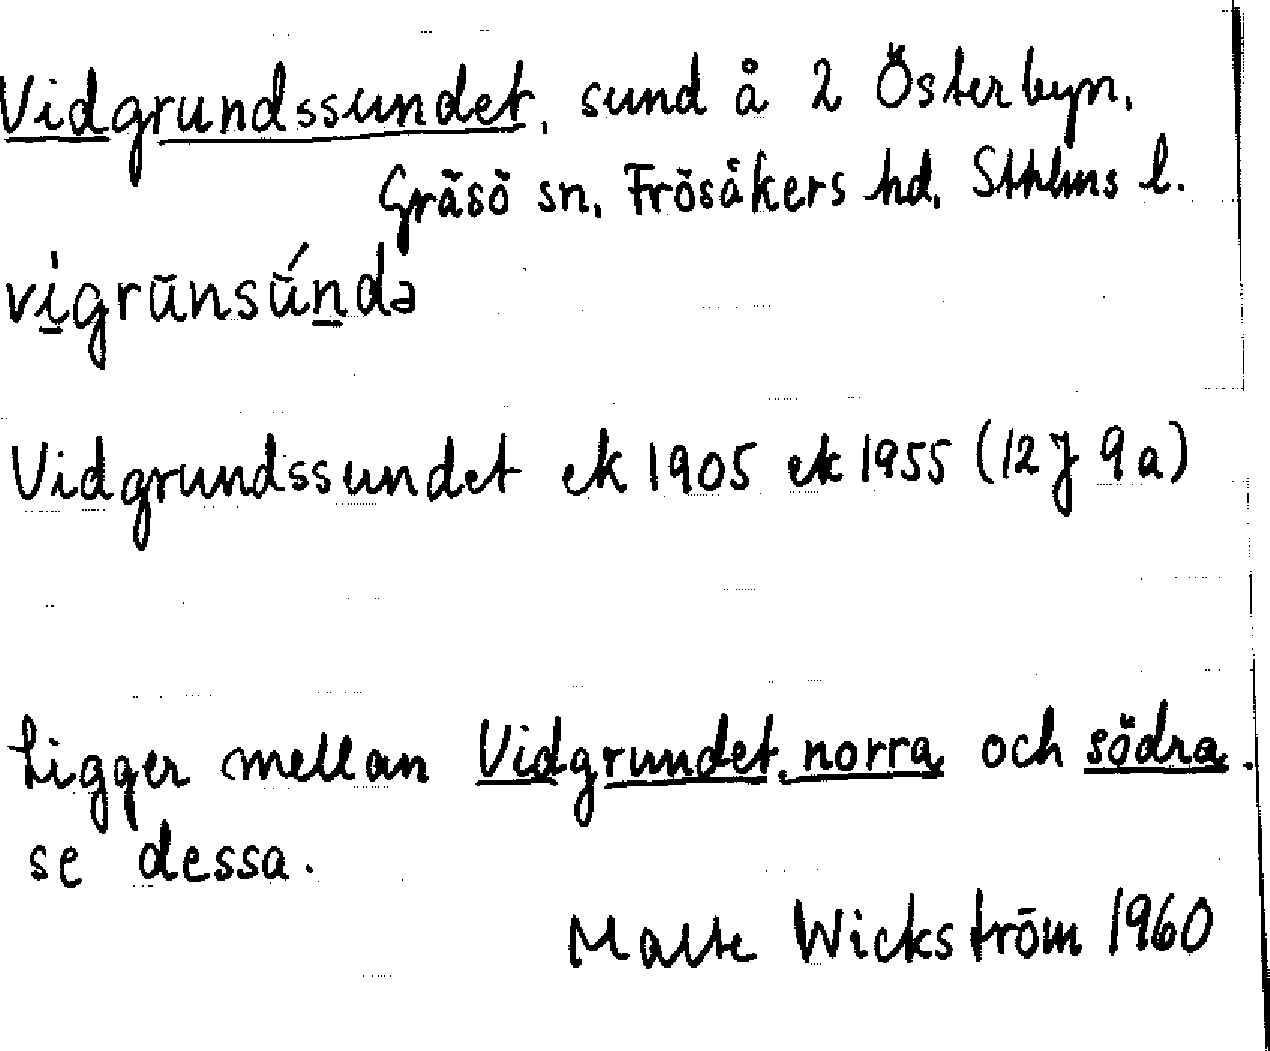 Vidgrundssundet, sund å 2 Österbyn,
Gräsö sn, Frösåkers hd, Sthlms l.
vi̠̍grŭnsŭ́n̠də
Vidgrundssundet ek 1905 ek 1955 (12 J 9 a)
Ligger mellan Vidgrundet, norra och södra.
se dessa.
Malte Wickström 1960